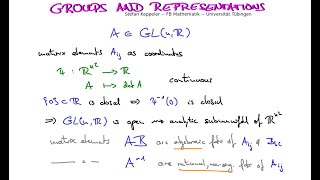 GROUPS AND REPRESENTATIONS
Stefan Keppeler — FB Mathematik — Universität Tübingen
A ∈ GL(n,ℝ)
matrix elements A_ij as coordinates
Ψ : ℝ^{n²} → ℝ
A ↦ det A continuous
{0} ⊂ ℝ is closed ⇒ Ψ⁻¹(0) is closed
⇒ GL(n,ℝ) is open analytic submanifold of ℝ^{n²}
matrix elements A·B are algebraic fcts of A_ij &
— " — A⁻¹ are rational, fcts of A_ij